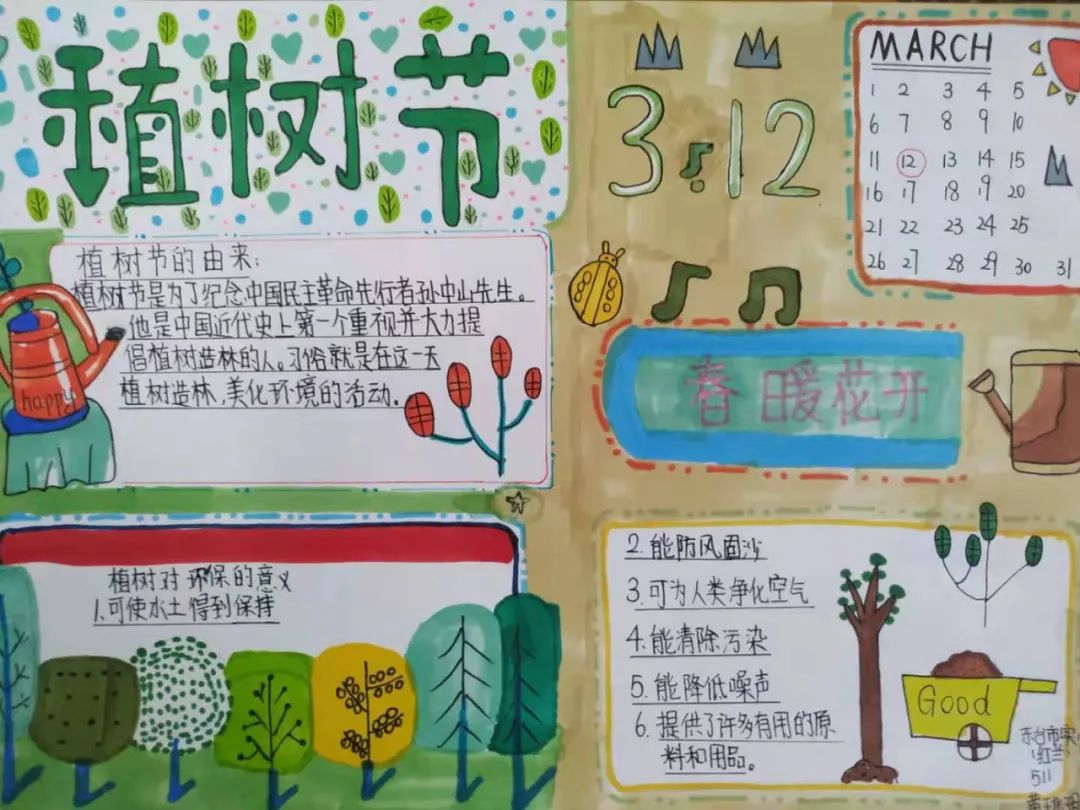 植树节
植树节的由来：
植树节是为了纪念中国民主革命先行者孙中山先生。
他是中国近代史上第一个重视并大力提
倡植树造林的人。习俗就是在这一天
植树造林，美化环境的活动。
happy
植树对环保的意义
1.可使水土得到保持
3.12
MARCH
1 2 3 4 5
6 7 8 9 10
11 12 13 14 15
16 17 18 19 20
21 22 23 24 25
26 27 28 29 30 31
春暖花开
2.能防风固沙
3.可为人类净化空气
4.能清除污染
5.能降低噪声
6.提供了许多有用的原
料和用品。
Good
东台市实
(红兰)
511